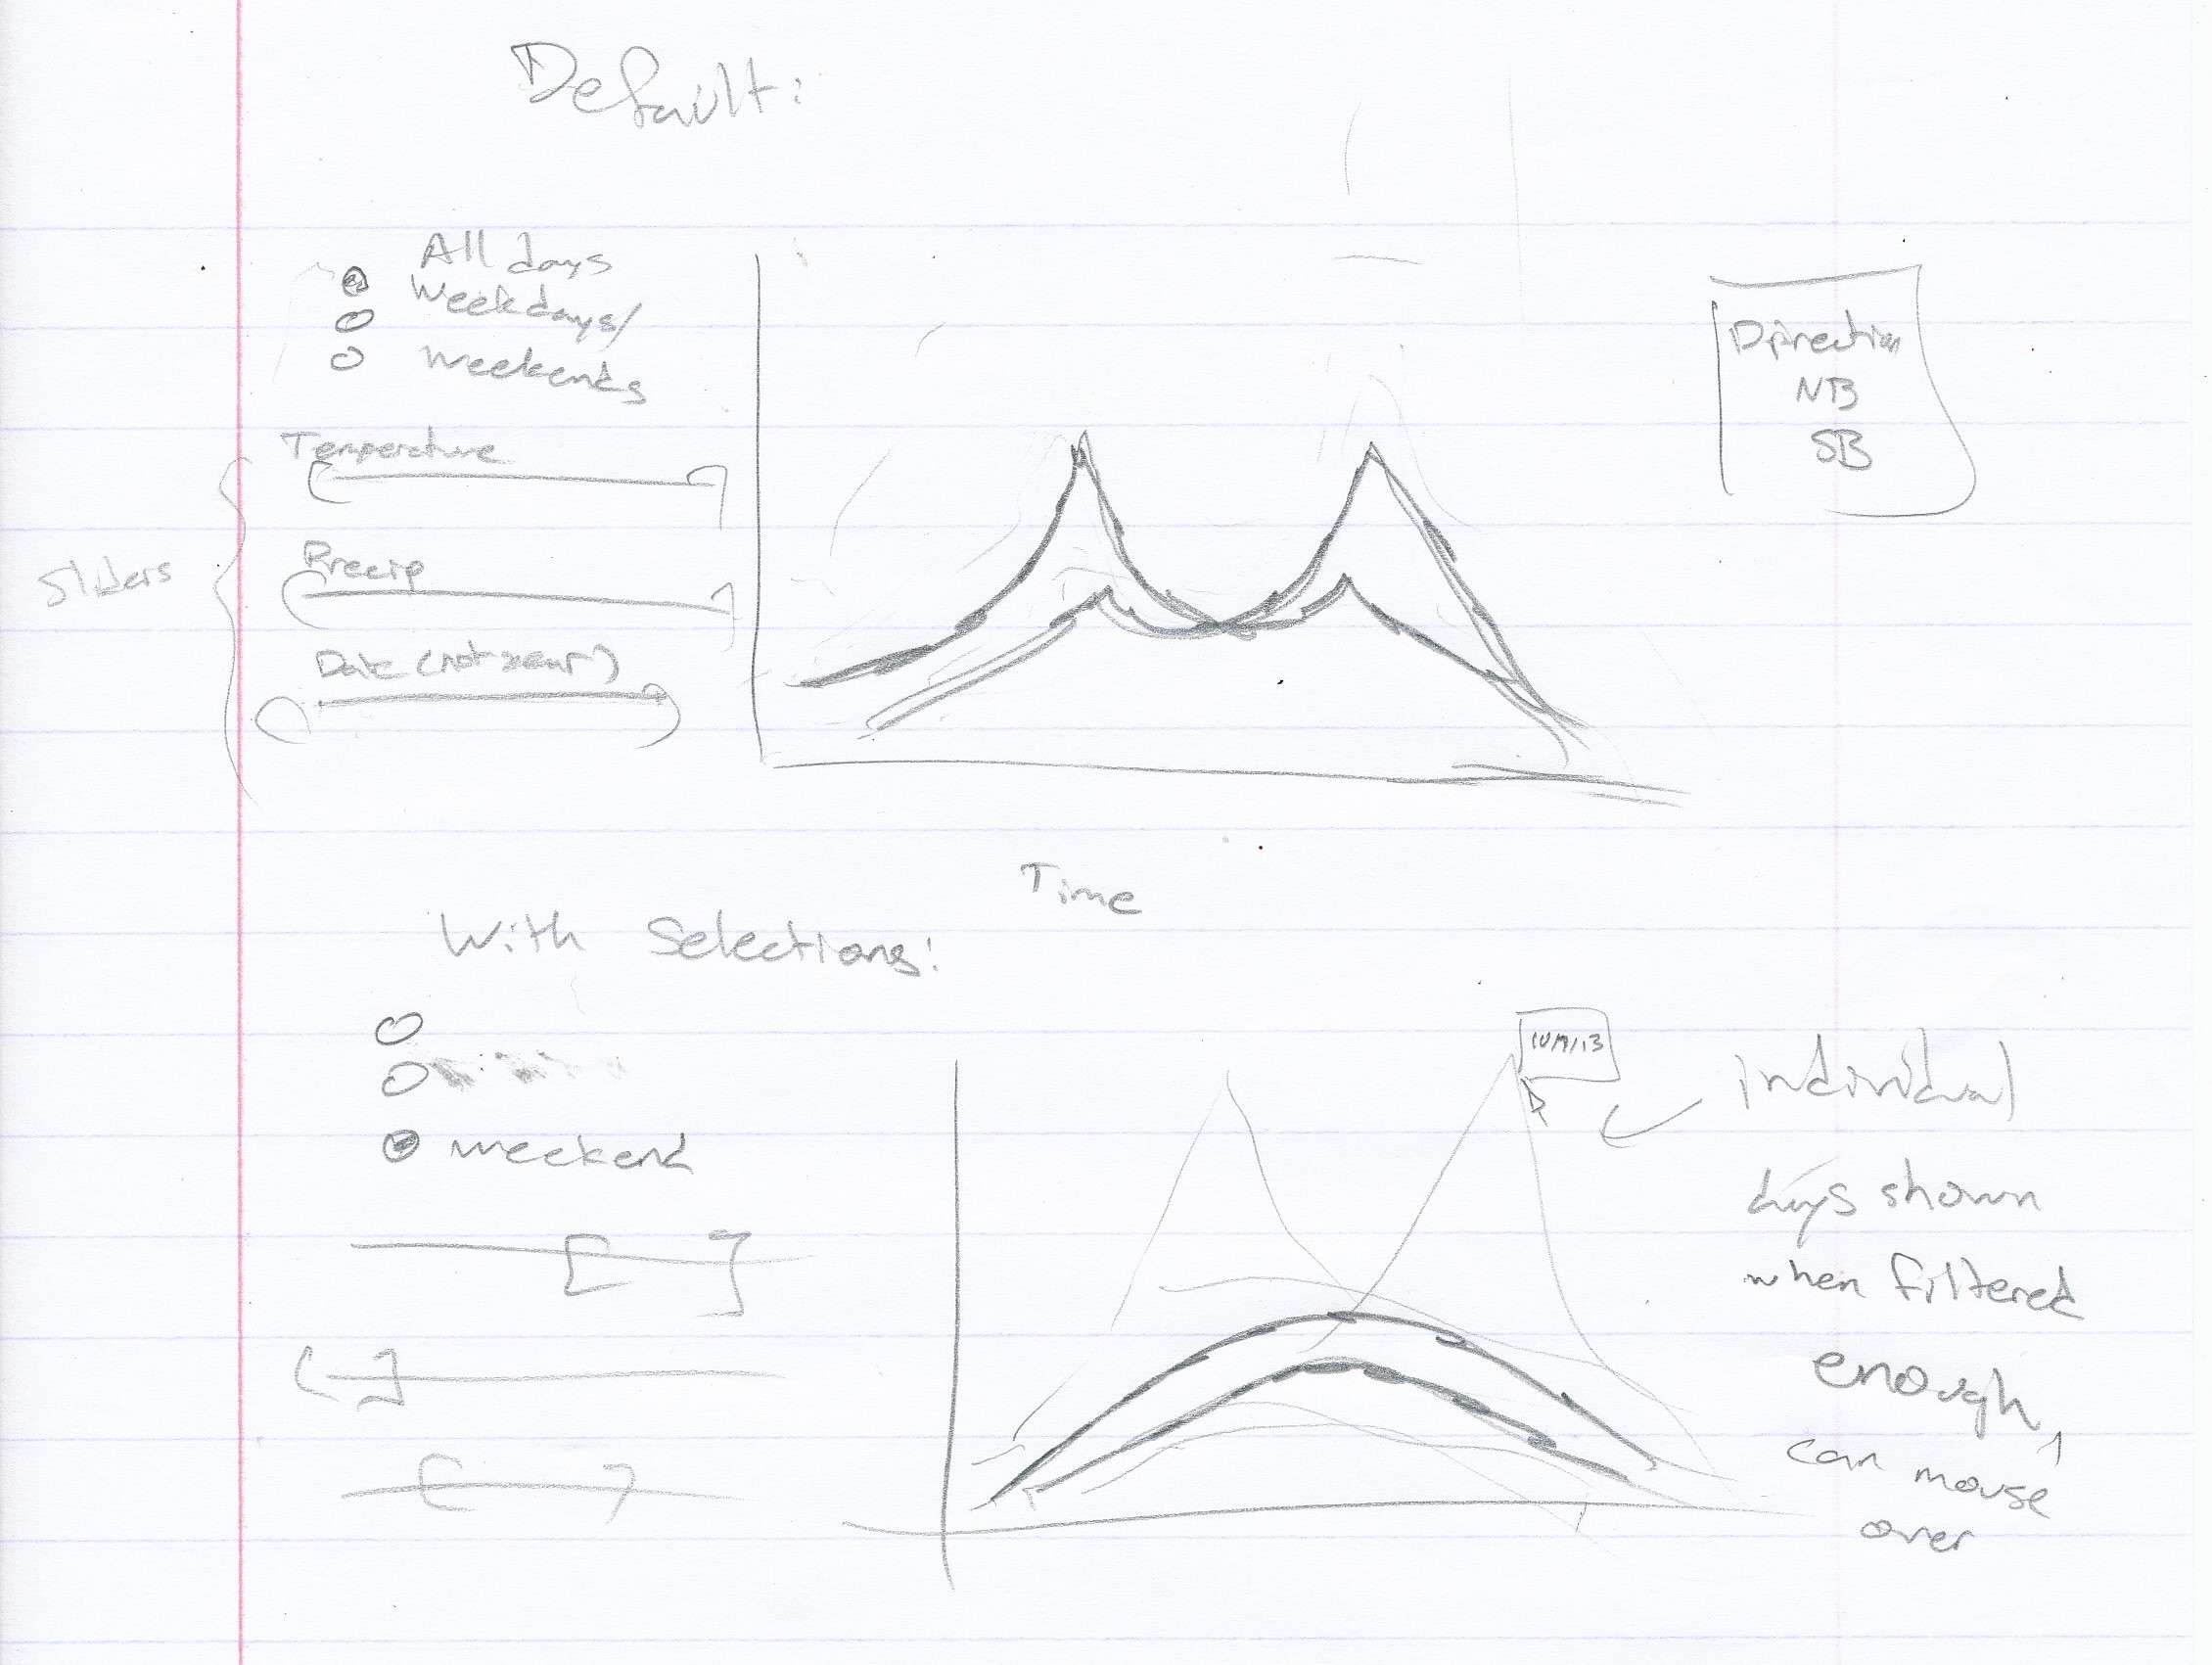 Default:
All days
Weekdays/
Weekends
Temperature
Sliders
Precip
Date (not year)
Direction
NB
SB
Time
With Selections:
weekend
individual
days shown
when filtered
enough,
can mouse
over